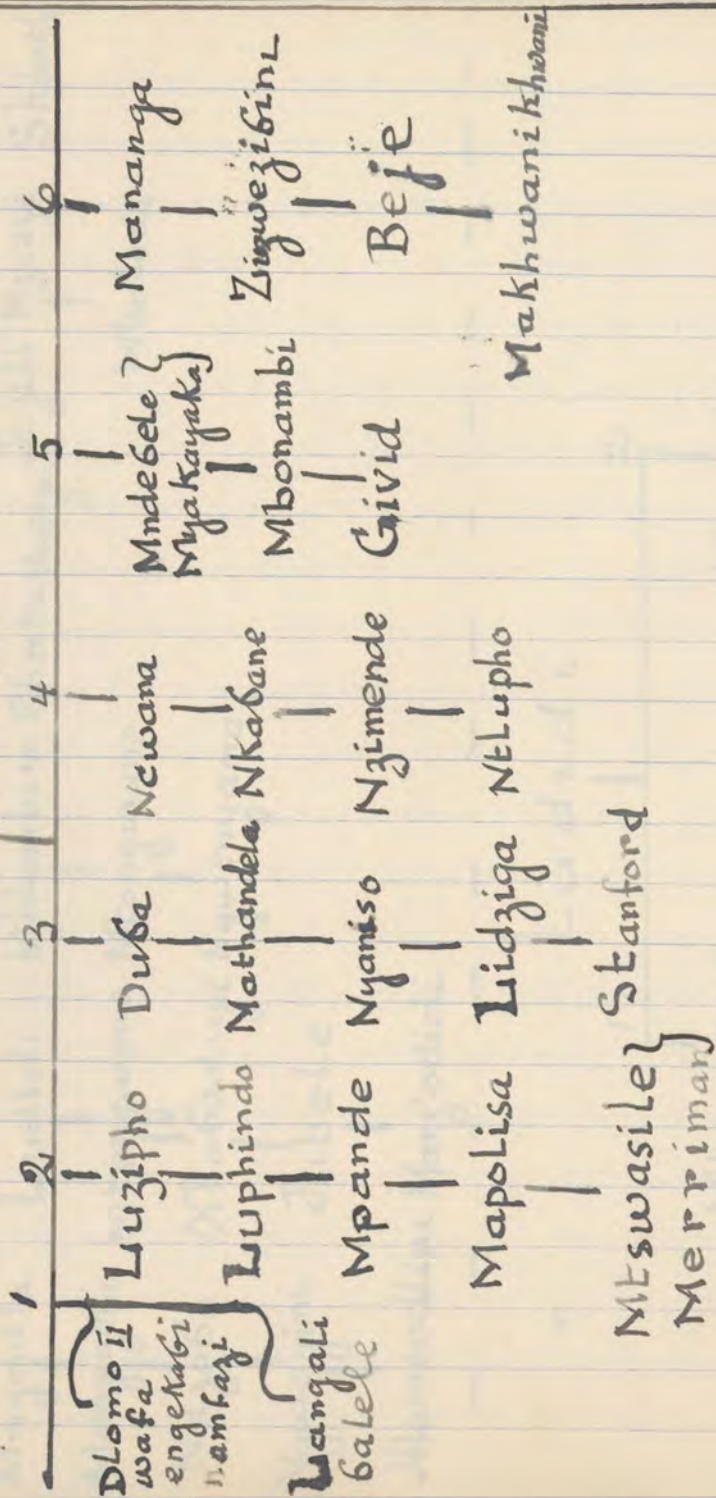 1
Dlomo II
wafa
engekaɓi
namfazi
Langali
ɓalele
2
Luzipho
Luphindo
Mpande
Mapolisa
Mtswasile }
Merriman
3
Duɓa
Mathandela
Nyaniso
Lidziga
Stanford
4
Ncwana
Nkaɓane
Nzimende
Ntlupho
5
Mndeɓele }
Myakayaka
Mbonambi
Givid
6
Mananga
Beje
Makhwanikhwani